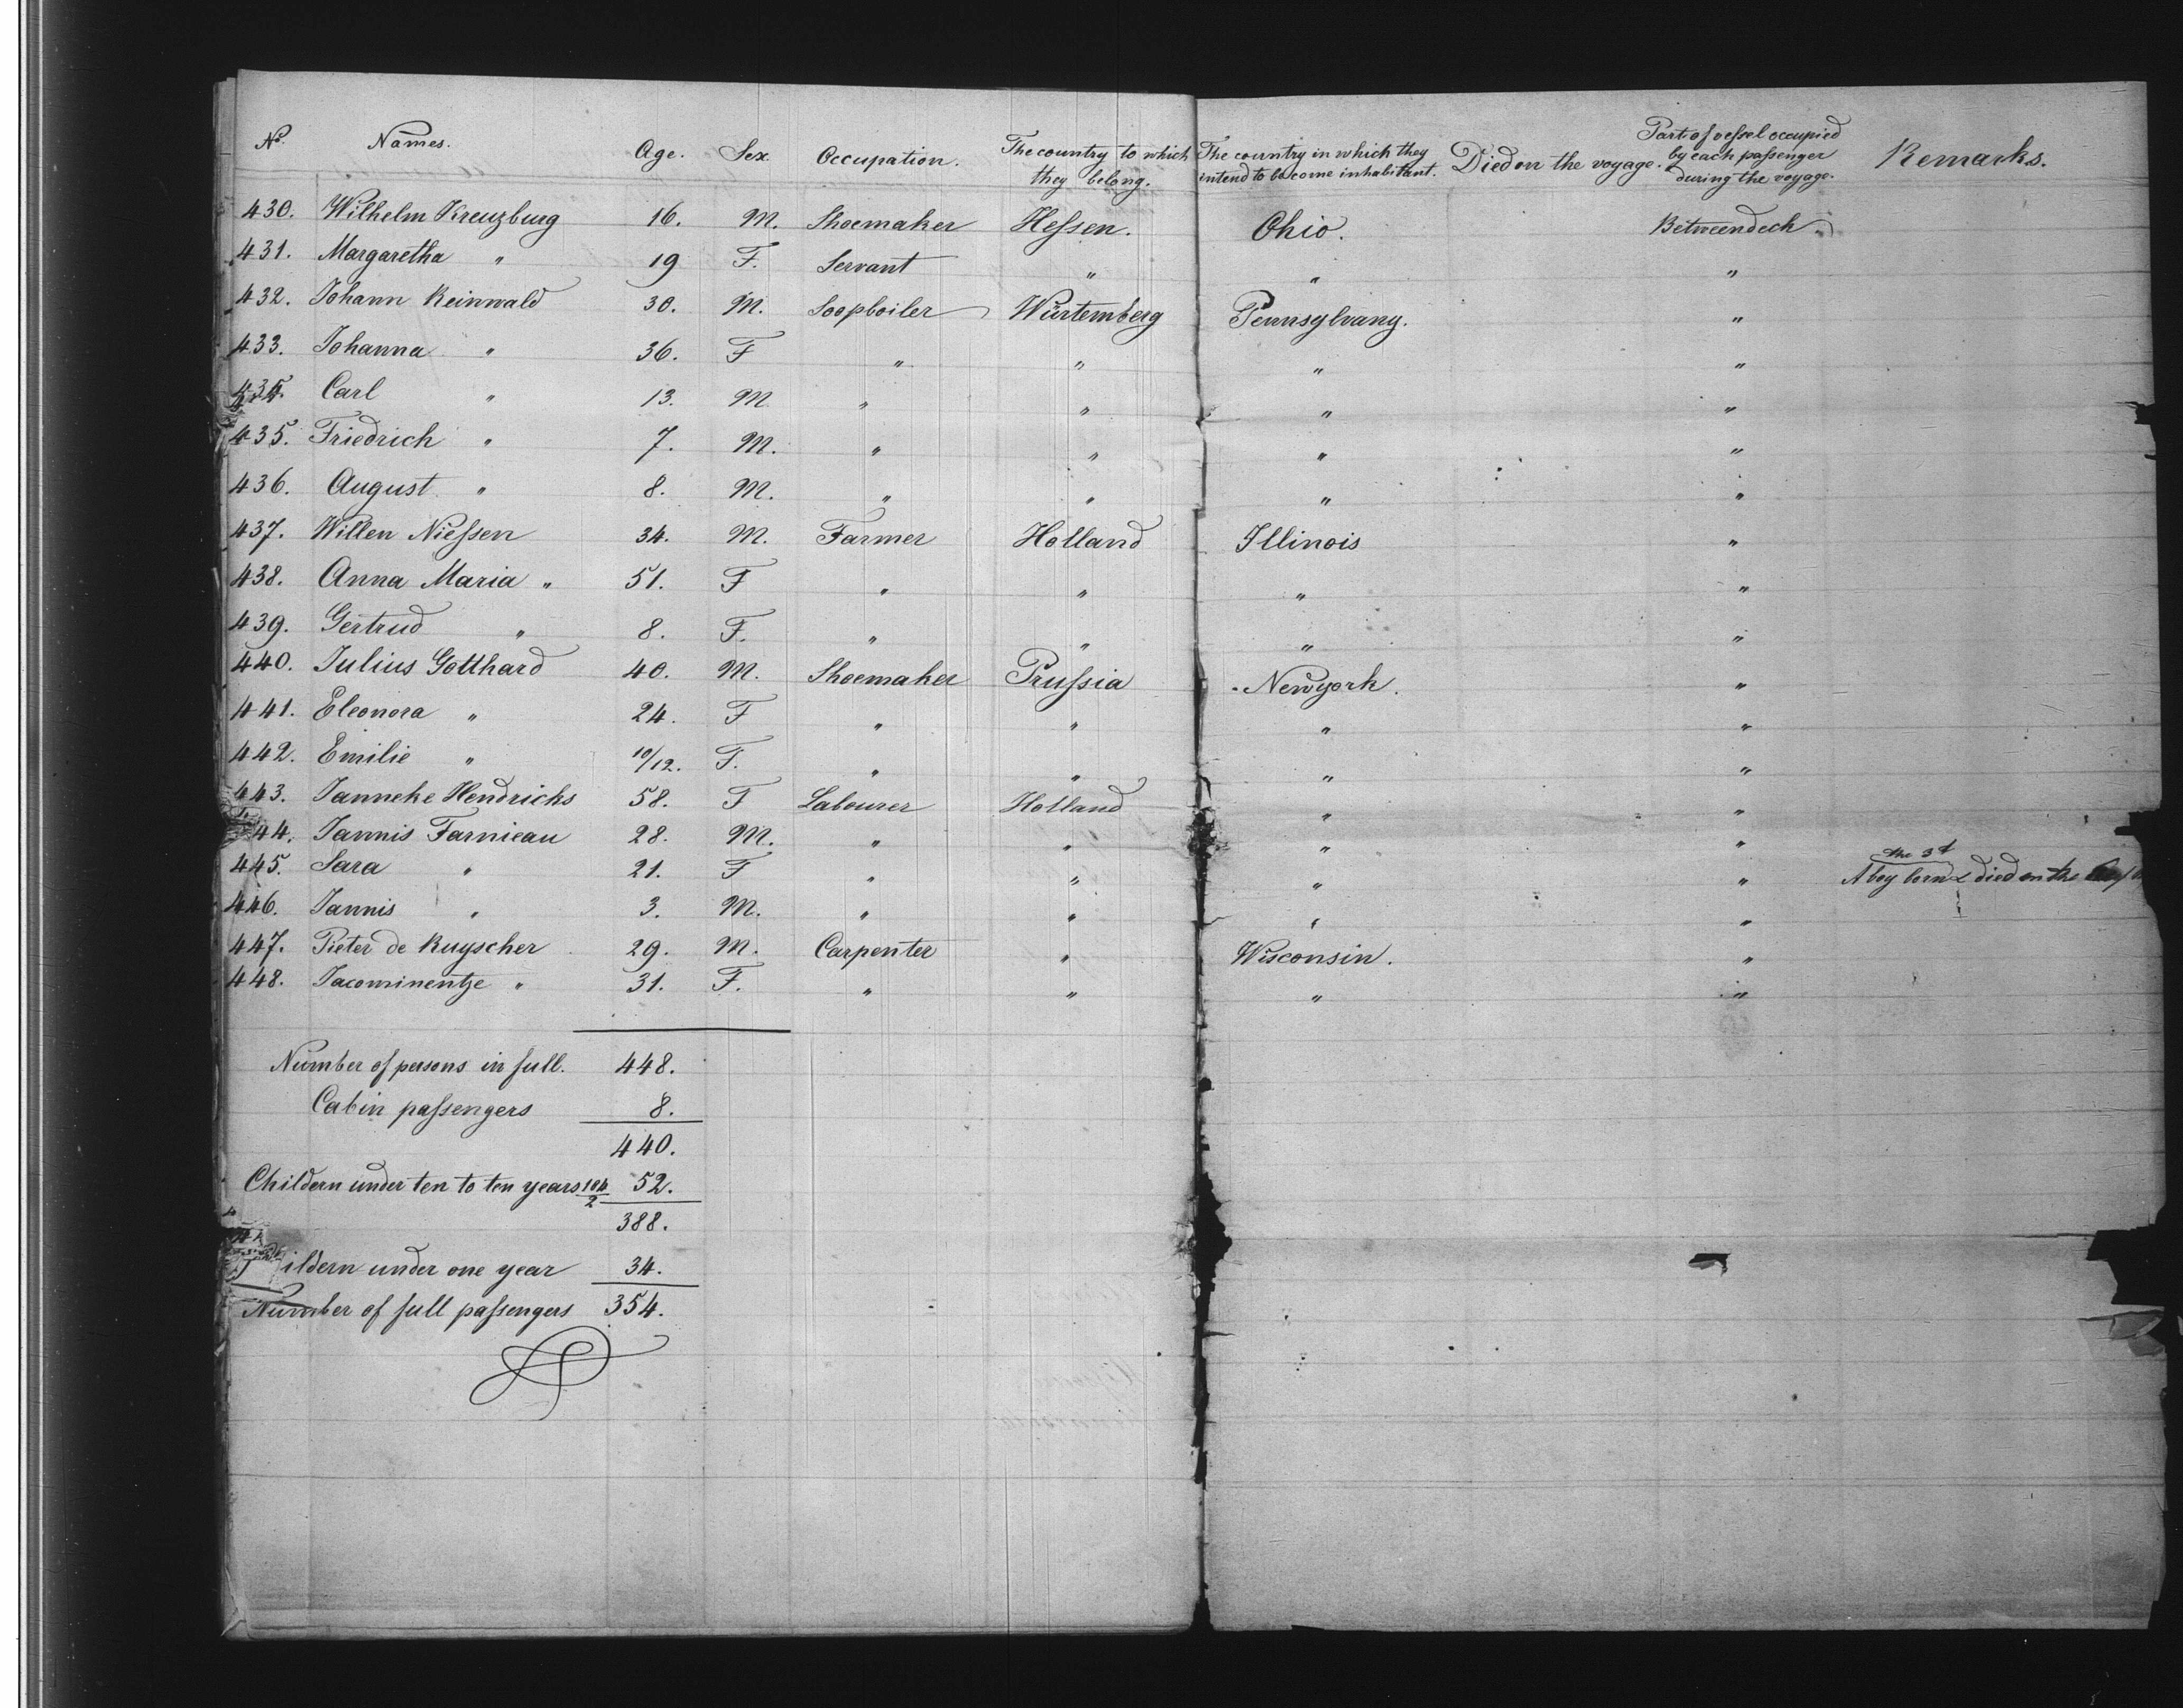 No. Names. Age. Sex. Occupation. The country to which they belong. The country in which they intend to become inhabitant. Died on the voyage. Part of vessel occupied by each passenger during the voyage. Remarks.
430. Wilhelm Kreuzburg 16. M. Shoemaker Hessen. Ohio. Betweendeck
431. Margaretha " 19 F. Servant " " "
432. Johann Reinwald 30. M. Soopboiler Würtemberg Pennsylvany. "
433. Johanna " 36. F " " " "
434. Carl " 13. M " " " "
435. Friedrich " 7. M. " " " "
436. August " 8. M. " " " "
437. Willen Niessen 34. M. Farmer Holland Illinois "
438. Anna Maria " 51. F " " " "
439. Gertrud " 8. F. " " " "
440. Julius Gotthard 40. M. Shoemaker Prussia Newyork. "
441. Eleonora " 24. F " " " "
442. Emilie " 10/12. F. " " " "
443. Janneke Hendricks 58. F Labourer Holland " "
444. Jannis Farnieau 28. M. " " " "
445. Sara " 21. F " " " " A boy born & died on the the 3d
446. Jannis " 3. M. " " " "
447. Pieter de Ruyscher 29. M. Carpenter " Wisconsin. "
448. Jacominentje " 31. F. " " " "
Number of persons in full. 448.
Cabin passengers 8.
440.
Childern under ten to ten years 104/2 52.
388.
ildern under one year 34.
Number of full passengers 354.